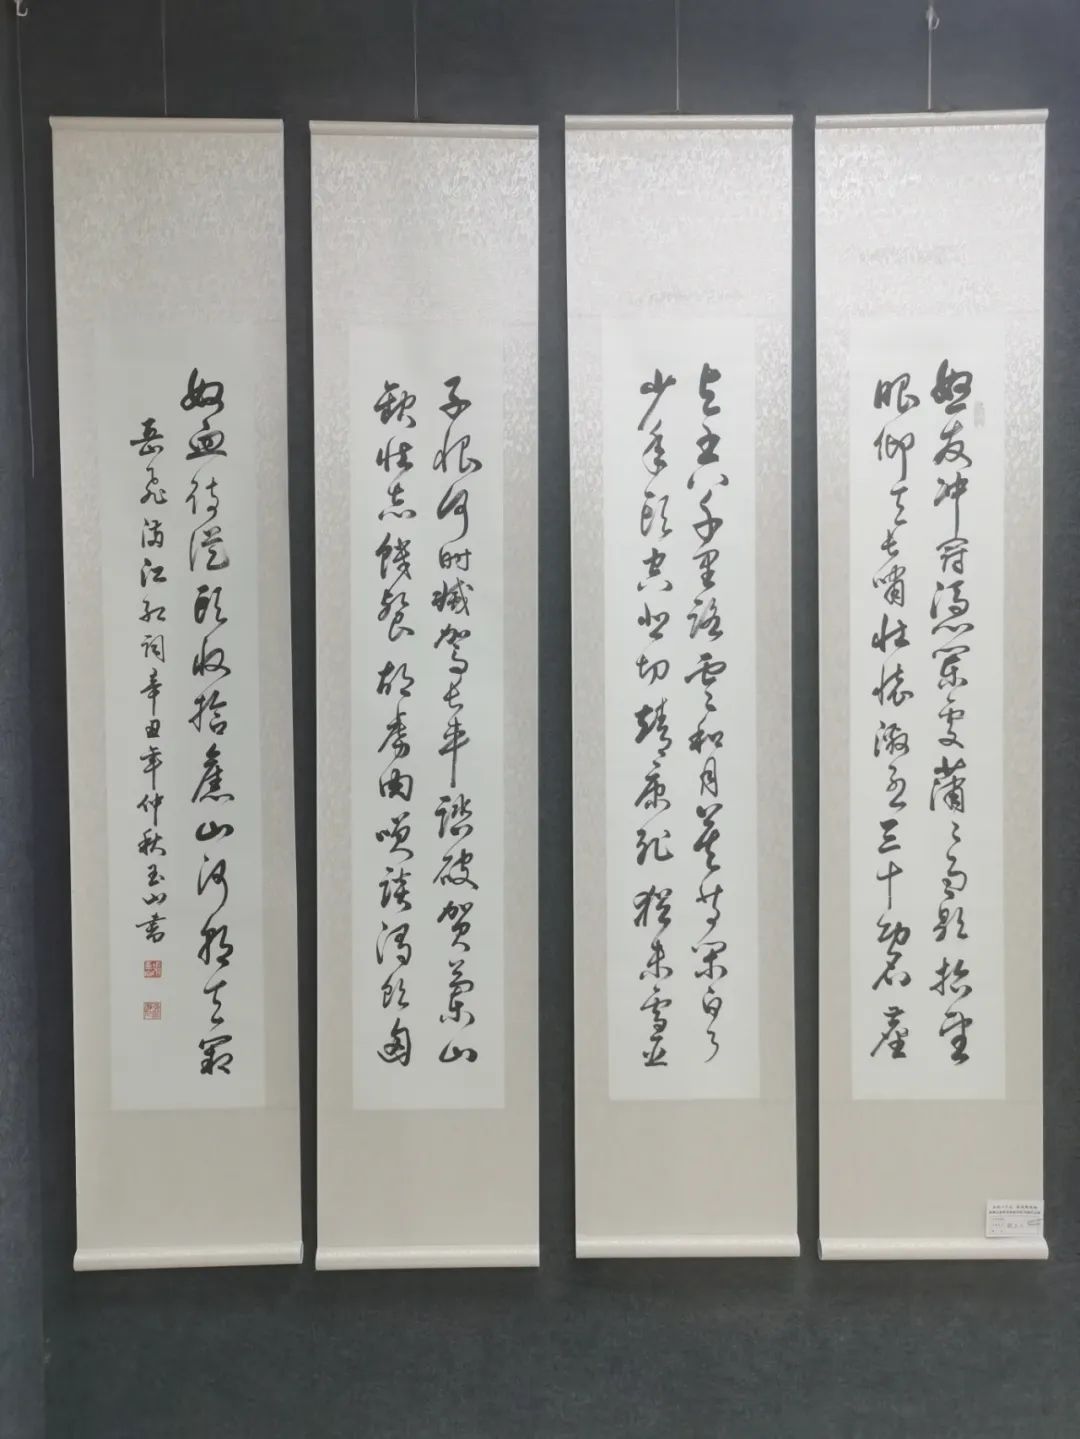 怒发冲冠憑闌處潇潇雨歇抬望
眼仰天长啸壮懷激烈三十功名塵
与土八千里路雲和月莫等閑白了
少年頭空悲切靖康耻猶未雪臣
子恨何时滅驾长車踏破贺蘭山
缺壮志饑餐胡虜肉笑談渴飲匈
奴血待從頭收拾舊山河朝天闕
岳飛满江红詞辛丑年仲秋玉山書